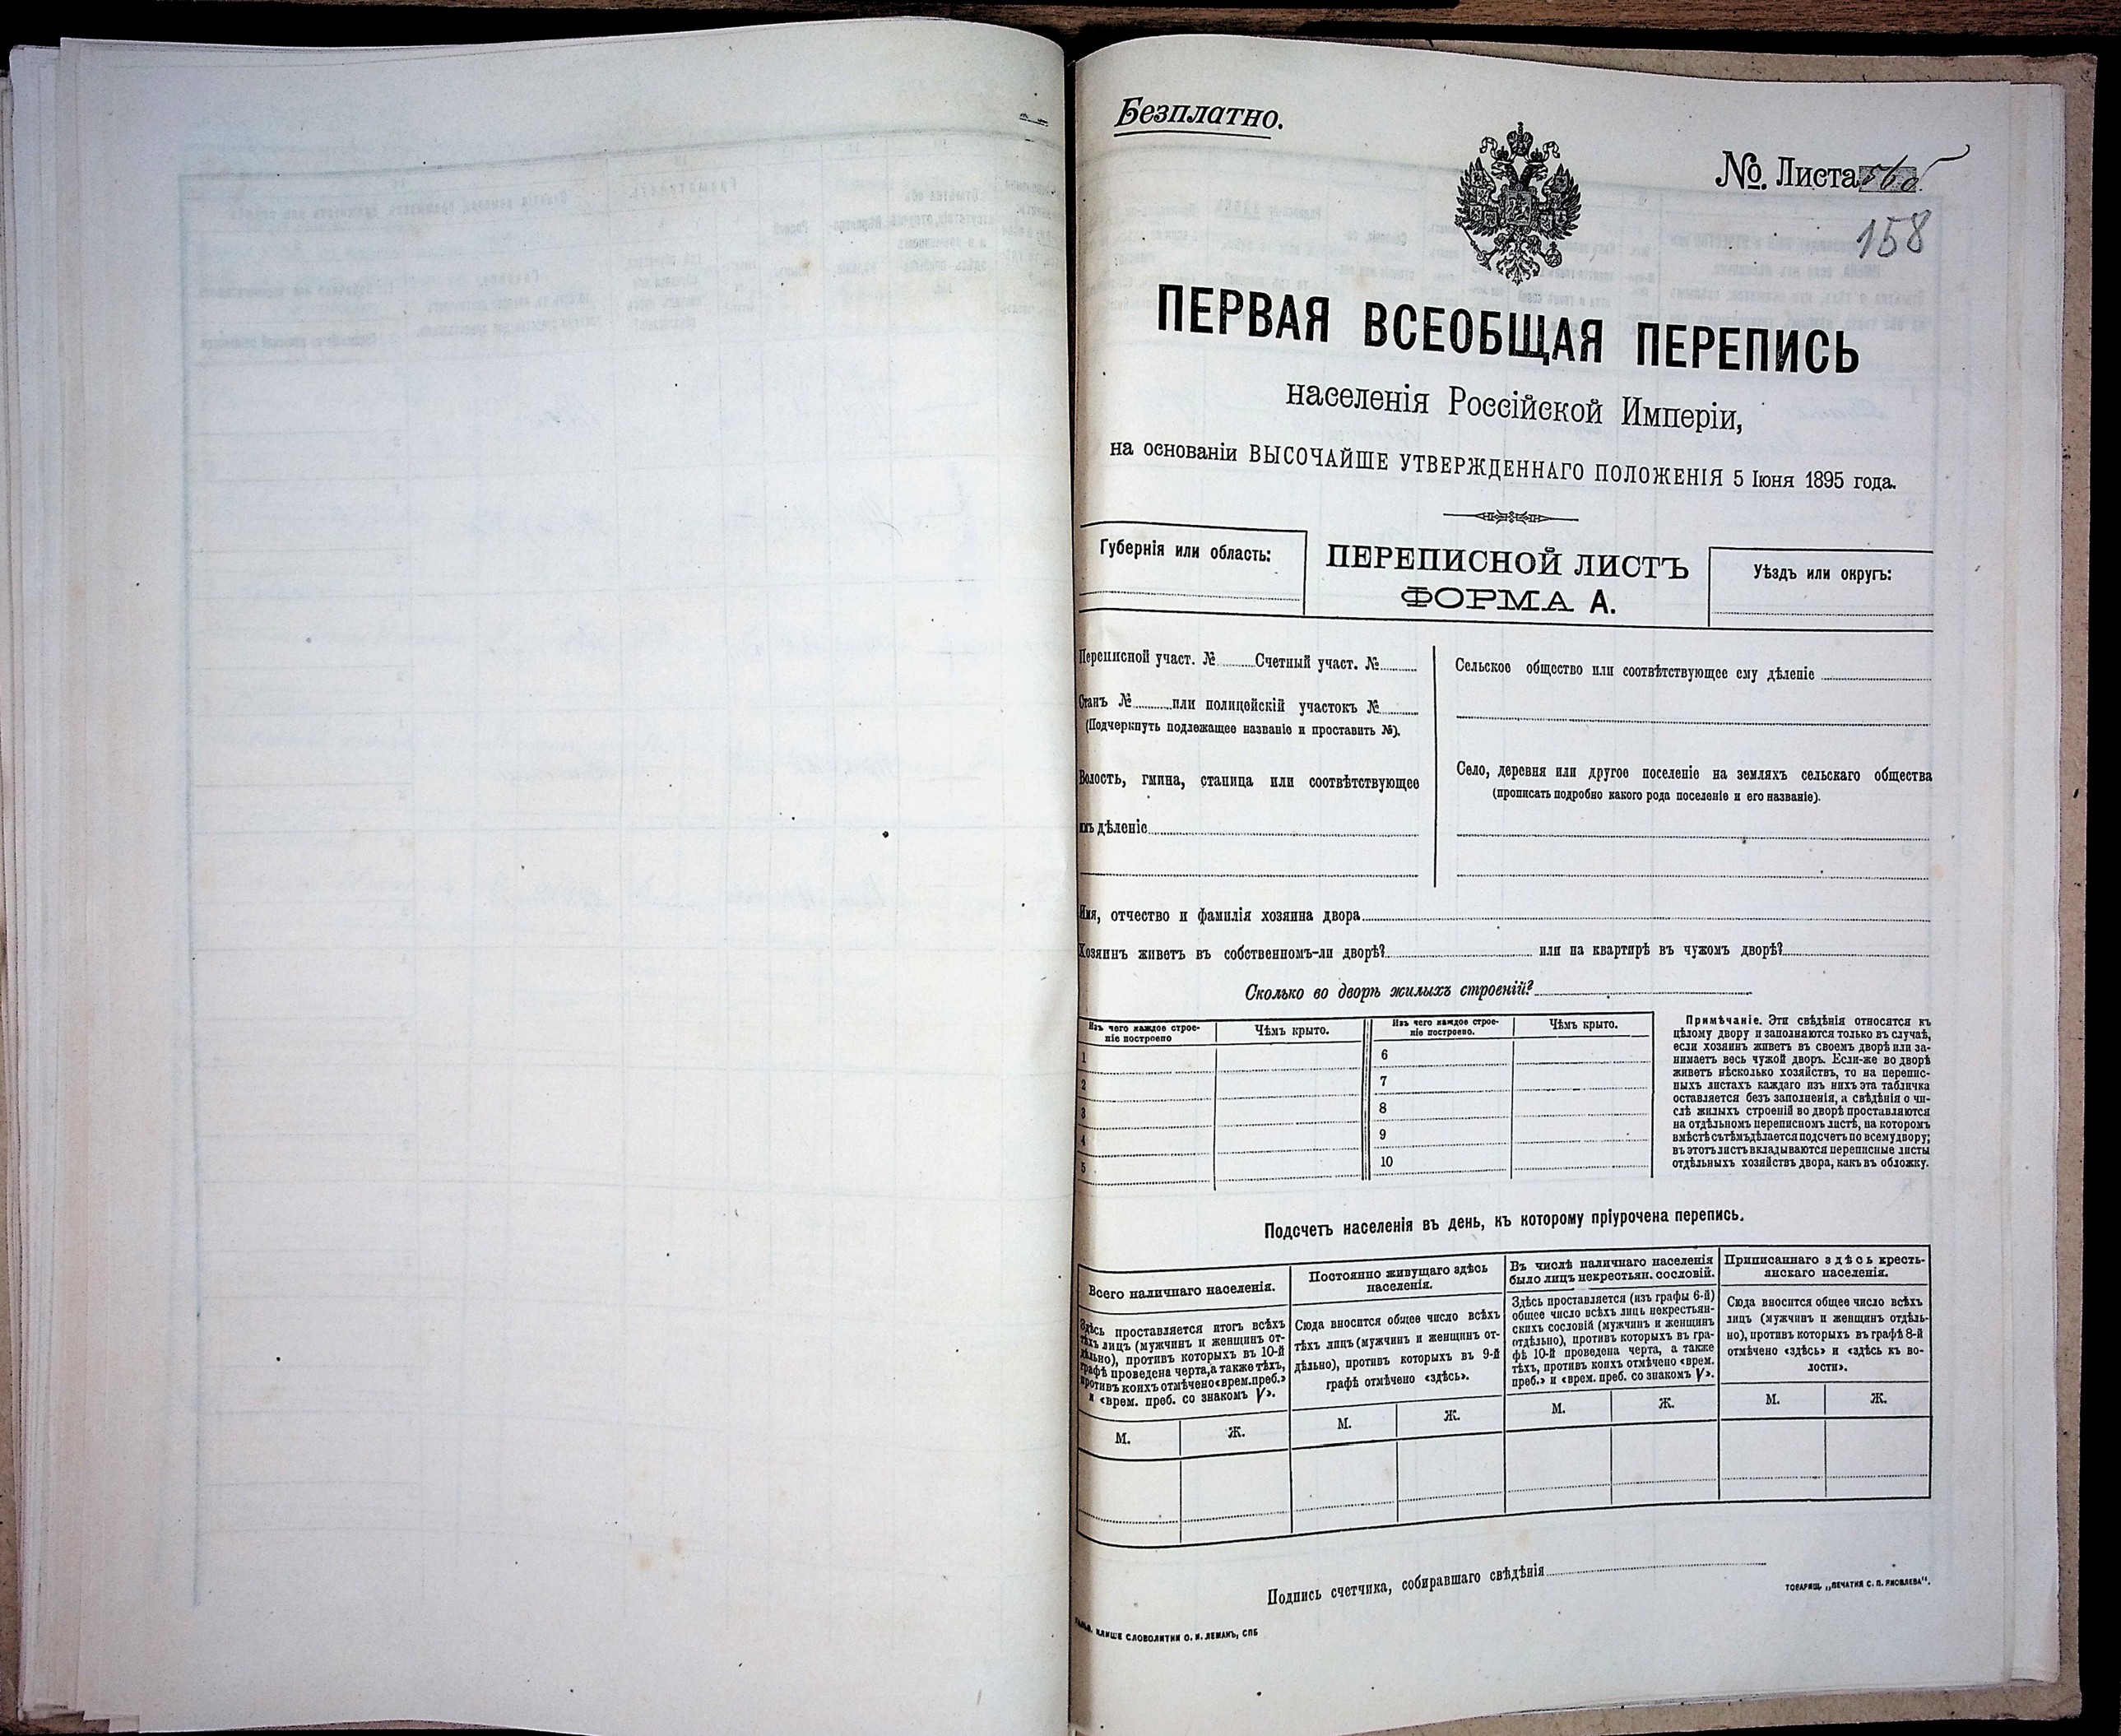 Безплатно.
№. Листа
158
ПЕРВАЯ ВСЕОБЩАЯ ПЕРЕПИСЬ
населенія Россійской Имперіи,
на основаніи ВЫСОЧАЙШЕ УТВЕРЖДЕННАГО ПОЛОЖЕНІЯ 5 Іюня 1895 года.
Губернія или область:
ПЕРЕПИСНОЙ ЛИСТЪ
ФОРМА А.
Уѣздъ или округъ:
Переписной участ. № Счетный участ. №
Станъ № или полицейскій участокъ №
(Подчеркнуть подлежащее названіе и проставить №).
Волость, гмина, станица или соотвѣтствующее
имъ дѣленіе
Сельское общество или соотвѣтствующее ему дѣленіе
Село, деревня или другое поселеніе на земляхъ сельскаго общества
(прописать подробно какого рода поселеніе и его названіе).
Имя, отчество и фамилія хозяина двора
Хозяинъ живетъ въ собственномъ-ли дворѣ? или на квартирѣ въ чужомъ дворѣ?
Сколько во дворѣ жилыхъ строеній?
Изъ чего каждое строе-
ніе построено
Чѣмъ крыто.
1
2
3
4
5
Изъ чего каждое строе-
ніе построено.
Чѣмъ крыто.
6
7
8
9
10
Примѣчаніе. Эти свѣдѣнія относятся къ
цѣлому двору и заполняются только въ случаѣ,
если хозяинъ живетъ въ своемъ дворѣ или за-
нимаетъ весь чужой дворъ. Если-же во дворѣ
живетъ нѣсколько хозяйствъ, то на перепис-
ныхъ листахъ каждаго изъ нихъ эта табличка
оставляется безъ заполненія, а свѣдѣнія о чи-
слѣ жилыхъ строеній во дворѣ проставляются
на отдѣльномъ переписномъ листѣ, на которомъ
вмѣстѣ съ тѣмъ дѣлается подсчетъ по всему двору;
въ этотъ листъ вкладываются переписные листы
отдѣльныхъ хозяйствъ двора, какъ въ обложку.
Подсчетъ населенія въ день, къ которому пріурочена перепись.
Всего наличнаго населенія.
Здѣсь проставляется итогъ всѣхъ
тѣхъ лицъ (мужчинъ и женщинъ от-
дѣльно), противъ которыхъ въ 10-й
графѣ проведена черта, а также тѣхъ,
противъ коихъ отмѣчено «врем. преб.»
и «врем. преб. со знакомъ V».
М. Ж.
Постоянно живущаго здѣсь
населенія.
Сюда вносится общее число всѣхъ
тѣхъ лицъ (мужчинъ и женщинъ от-
дѣльно), противъ которыхъ въ 9-й
графѣ отмѣчено «здѣсь».
М. Ж.
Въ числѣ наличнаго населенія
было лицъ некрестьян. сословій.
Здѣсь проставляется (изъ графы 6-й)
общее число всѣхъ лицъ некрестьян-
скихъ сословій (мужчинъ и женщинъ
отдѣльно), противъ которыхъ въ гра-
фѣ 10-й проведена черта, а также
тѣхъ, противъ коихъ отмѣчено «врем.
преб.» и «врем. преб. со знакомъ V».
М. Ж.
Приписаннаго здѣсь кресть-
янскаго населенія.
Сюда вносится общее число всѣхъ
лицъ (мужчинъ и женщинъ отдѣль-
но), противъ которыхъ въ графѣ 8-й
отмѣчено «здѣсь» и «здѣсь къ во-
лости».
М. Ж.
Подпись счетчика, собиравшаго свѣдѣнія
ТОВАРИЩ. „ПЕЧАТНЯ С. П. ЯКОВЛЕВА“.
КЛИШЕ СЛОВОЛИТНИ О. И. ЛЕМАНЪ, СПБ